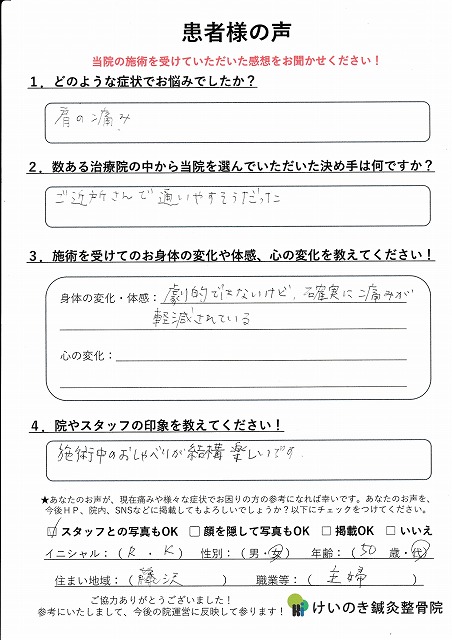 患者様の声
当院の施術を受けていただいた感想をお聞かせください！
１．どのような症状でお悩みでしたか？
肩の痛み
２．数ある治療院の中から当院を選んでいただいた決め手は何ですか？
ご近所さんで通いやすそうだった
３．施術を受けてのお身体の変化や体感、心の変化を教えてください！
身体の変化・体感：劇的ではないけど、確実に痛みが
軽減されている
心の変化：
４．院やスタッフの印象を教えてください！
施術中のおしゃべりが結構楽しいです.
★あなたのお声が、現在痛みや様々な症状でお困りの方の参考になれば幸いです。あなたのお声を、
今後ＨＰ、院内、SNSなどに掲載してもよろしいでしょうか？以下にチェックをつけてください。
☑ スタッフとの写真もOK □ 顔を隠して写真もOK □ 掲載OK □ いいえ
イニシャル：（ R ・ K ） 性別：（男・女） 年齢：（ 50 歳・代）
住まい地域：（ 藤沢 ） 職業等：（ 主婦 ）
ご協力ありがとうございました！
参考にいたしまして、今後の院運営に反映して参ります！
けいのき鍼灸整骨院